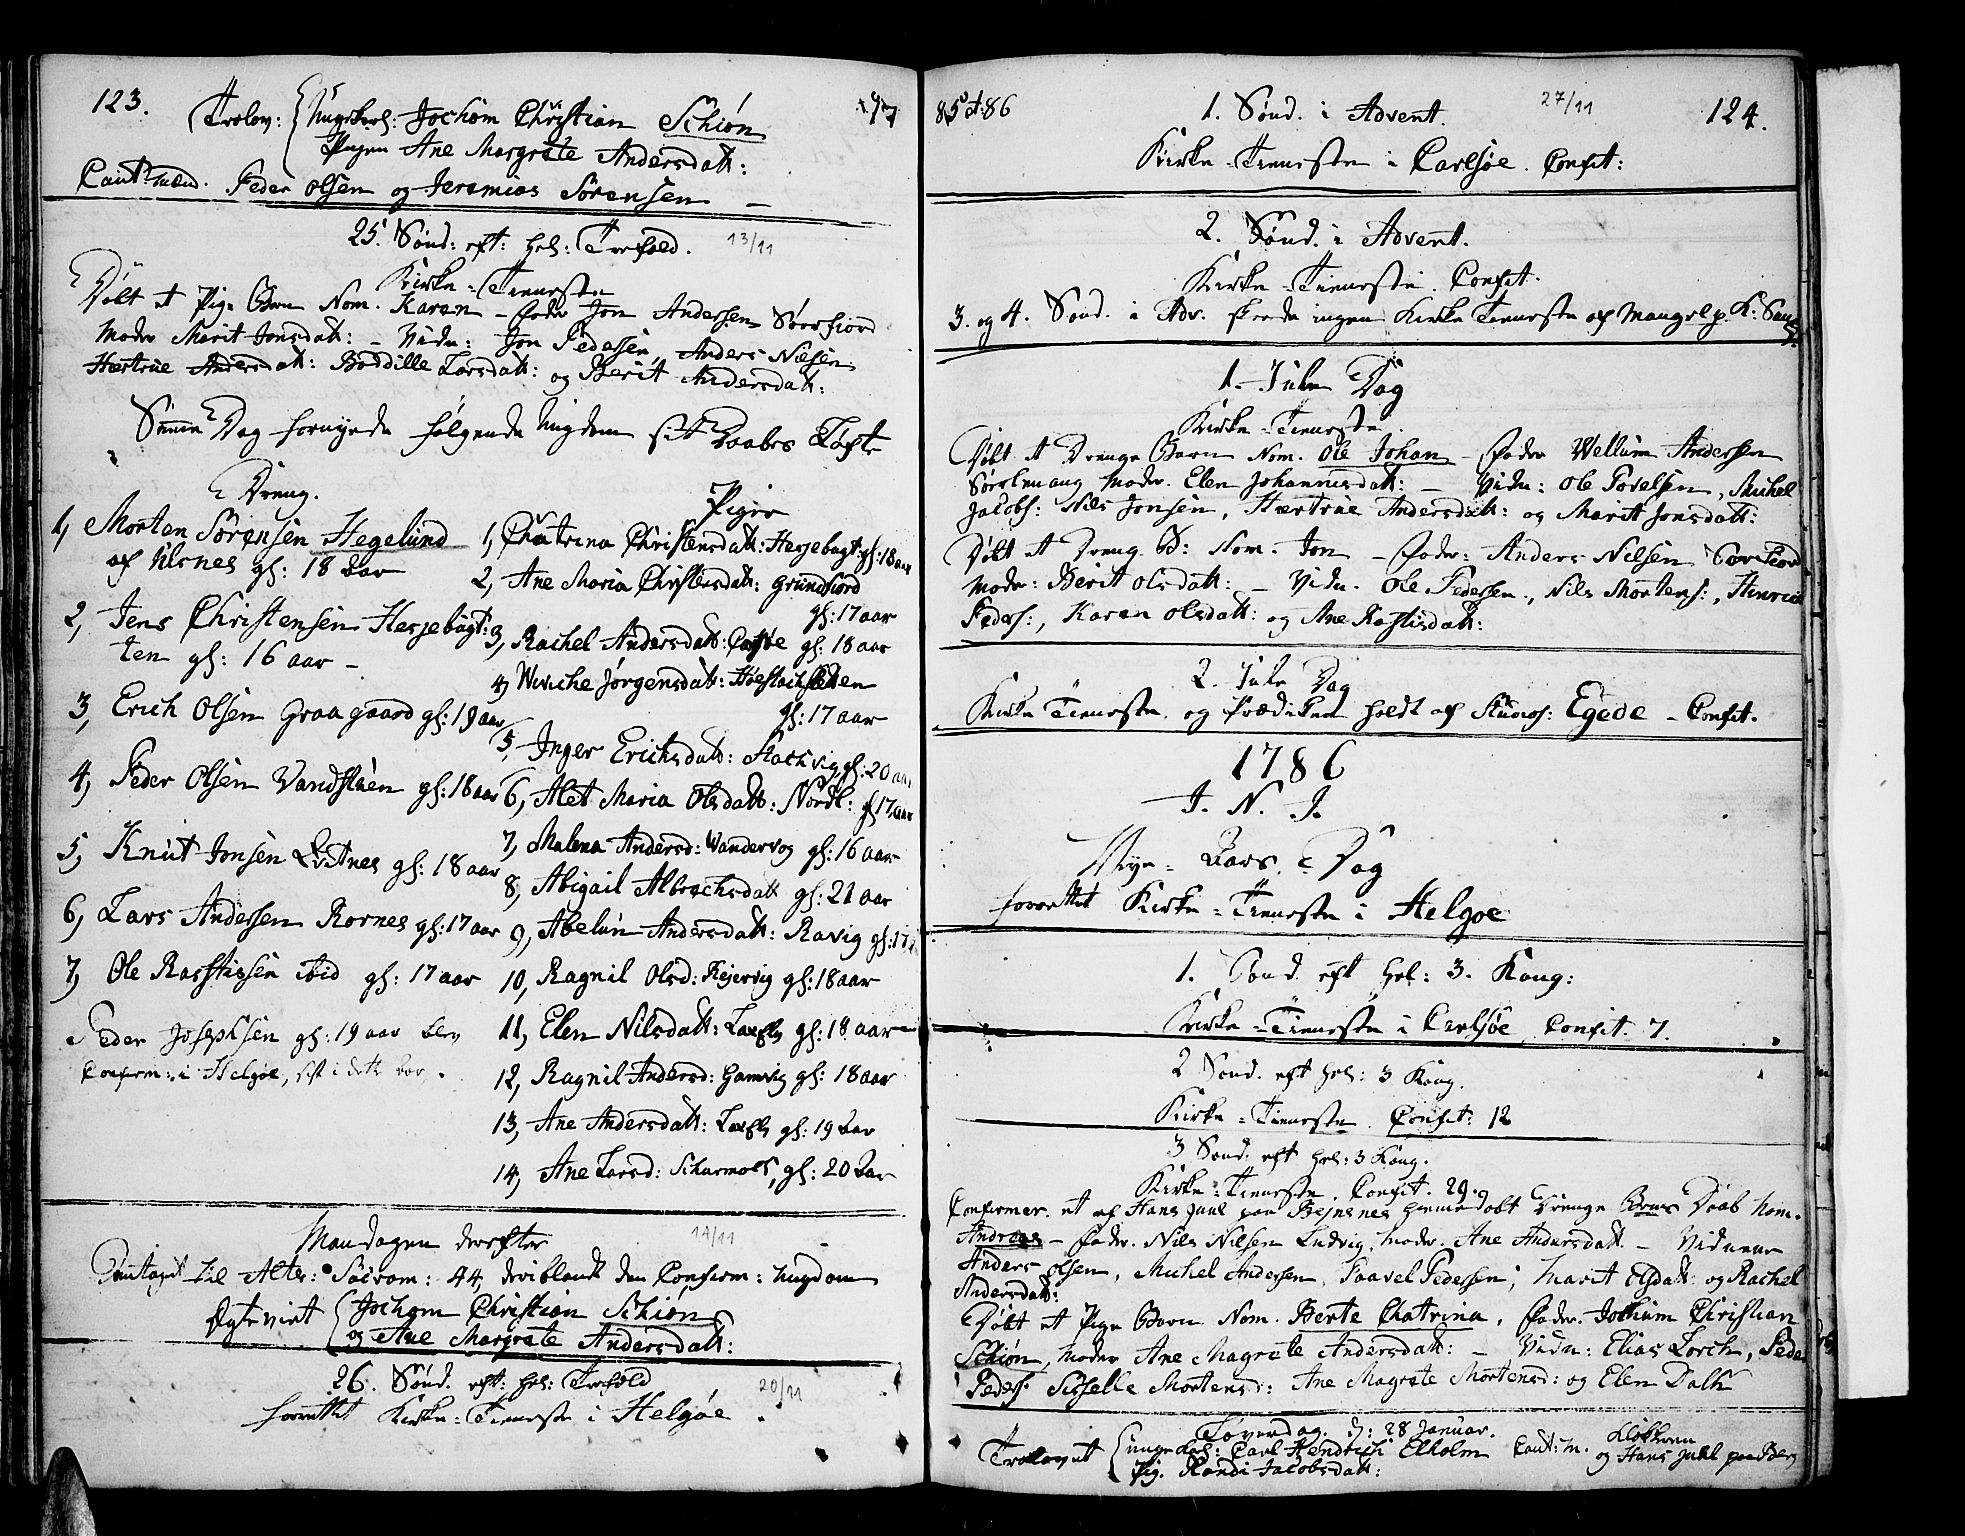 123.
Trolov: Ungekarl: Jochom Christian Schiøn
Pigen Ane Margrete Andersdatt:
Caut: mænd. Peder Olsen og Jeremias Sørensen
25. Sønd: eft: hel: Trefold. 13/11
Kirke-Tieneste
Døbt et Pige Barn Nom. Karen - Fader Jon Andersen Sørfiord
Moder Marit Jonsdatt: - Vidn: Jon Pedersen, Anders Nilsen
Hertrue Andersdatt: Boddille Larsdatt: og Berit Andersdatt:
Samme Dag fornyede følgende Ungdom sit Daabes Løfte
Dreng.
1, Morten Sørensen Hegelund
af Ulsnes gl: 18 Aar
2, Jens Christensen Hessebogt:
ten gl: 16 aar -
3, Erich Olsen Graagaard gl: 19 aar
4, Peder Olsen Vandstuen gl: 18 aar
5, Knut Jonsen Qvitnes gl: 18 aar
6, Lars Andersen Rornes gl: 17 aar
7, Ole Rasstissen ibid gl: 17 aar
Peder Josephsen gl: 19 aar blev
Confirm: i Helgøe, sist i dette Aar.
Piger
1, Chatrina Christensdatt: Hessebogt: gl: 18 aar
2, Ane Maria Christensdatt: Grundfiord
gl: 17 aar
3, Rachel Andersdatt: Carlsøe gl: 18 aar
4, Wiviche Jørgensdatt:
gl: 17 aar
5, Inger Erichsdatt: Stachvig gl: 20 aar
6, Alet Maria Olsdatt: Nordl: gl 17 aar
7, Malena Andersd: Vandervog gl: 16 aar
8, Abigail Albrechsdatt gl: 21 aar
9, Abelun Andersdatt: Ravig gl: 17
10, Ragnil Olsd: Kejervig gl: 18 aar
11, Elen Nilsdatt: gl: 18 aar
12, Ragnil Andersd: Gamvig gl: 18 aar
13, Ane Andersdatt: gl: 19 Aar
14, Ane Larsd: Scharmoes, gl: 20 Aar
Mandagen derefter 14/11
Antaget til Alter: Sacram: 44, deriblandt den Confirm: ungdom
Ægteviet Jochom Christian Schiøn
og Ane Margrete Andersdatt:
26. Sønd. eft: hel: Trefold 20/11
forrettet Kirke-Tieneste i Helgøe.
85 et 86
1. Sønd. i Advent. 27/11
124.
Kirke-Tieneste i Carlsøe. Confit:
2. Sønd. i Advent.
Kirke-Tieneste. Confit:
3. og 4. Sønd. i Adv. skeede ingen Kirke Tieneste af Mangel p. K: Sang
1. Jule Dag
Kirke-Tieneste.
Døbt et Drenge Barn Nom. Ole Johan - Fader Wellum Andersen
Moder. Elen Johannisdatt: - Vidn: Ole Povelsen, Michel
Jacobs: Nils Jonsen, Hertrue Andersdatt: og Marit Jonsdatt:
Døbt et Dreng. B: Nom. Jon - Fader: Anders Nilsen Sørfiord
Moder: Berit Olsdatt: - Vidn. Ole Pedersen, Nils Mortens:, Henrich
Peders:, Karen Olsdatt: og Ane Rastisdatt:
2. Jule Dag
Kirke Tieneste og Prædiken holdt af Studios: Egede - Confit.
1786
I. N. J.
Nye-Aars-Dag
forrettet Kirke-Tieneste i Helgoe
1. Sønd. eft hel: 3. Kong:
Kirke-Tieneste i Carlsøe. Confit: 7.
2 Sønd. eft hel: 3 Kong.
Kirke-Tieneste. Confit: 12
3 Sønd. eft hel: 3 Kong.
Kirke-Tieneste. Confit. 29.
Confirmer. et af Hans Juul paa Bejnsnes hiemmedøbt Drenge Barns Daab Nom.
Andreas - Fader. Nils Nilsen Ludvig. Moder. Ane Andersdatt - Vidnerne
Anders Olsen, Michel Andersen, Paavel Pedersen, Marit Elsdatt: og Rachel
Andersdatt:
Døbt et Pige Barn Nom. Berte Chatrina, Fader. Jochum Christian
Schiøn, Moder Ane Magrete Andersdatt: - Vidn: Elias Lorch, Peder
Peders. Sisselle Mortensd: Ane Magrete Mortensd: og Elen Dalk
Løverdag. d: 28 Januar.
Trolovet Ungekarl: Carl Hendrich Elholm Caut: m. Klokkeren
Pig. Randi Jacobsdatt: og Hans Juhl paa